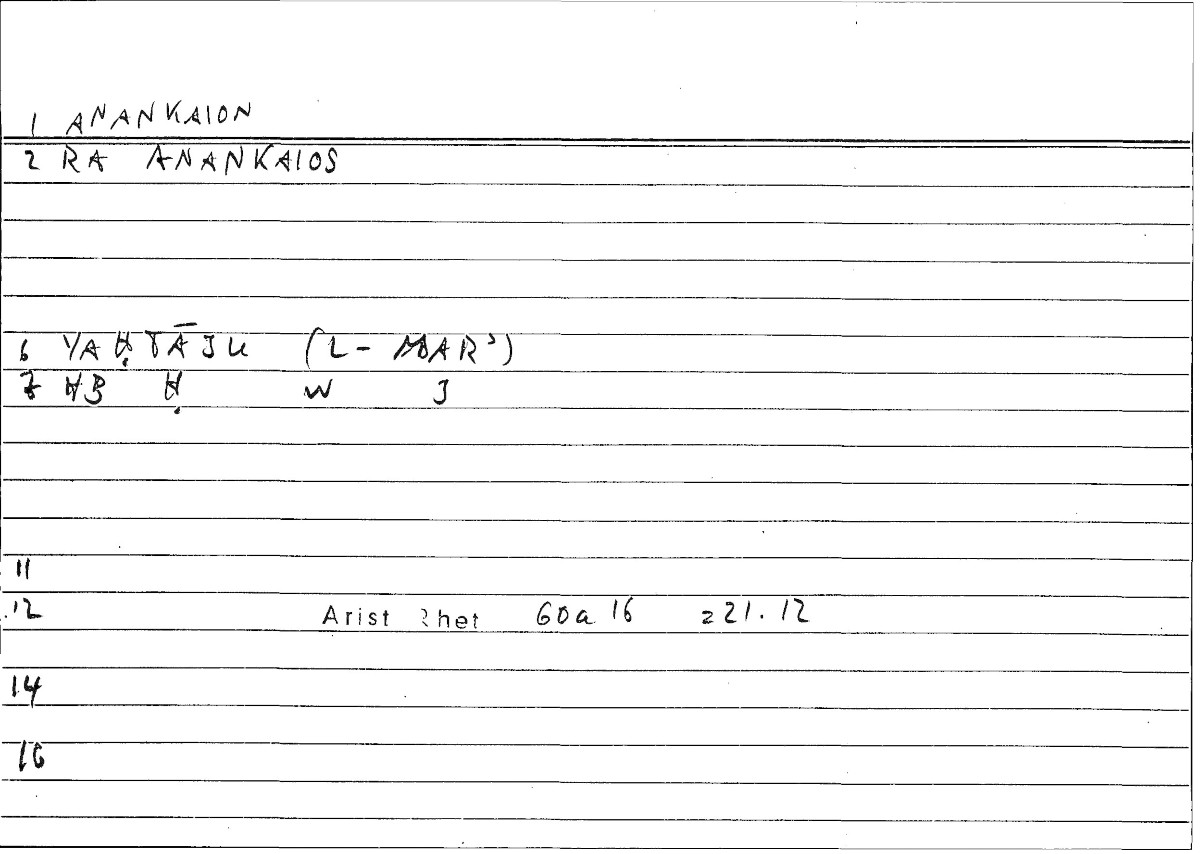 1 ANANKAION
2 RA ANANKAIOS
6 YAḤTĀJU (L-MARʾ)
7 HB Ḥ W J
11
12 Arist Rhet 60a 16 =21.12
14
16